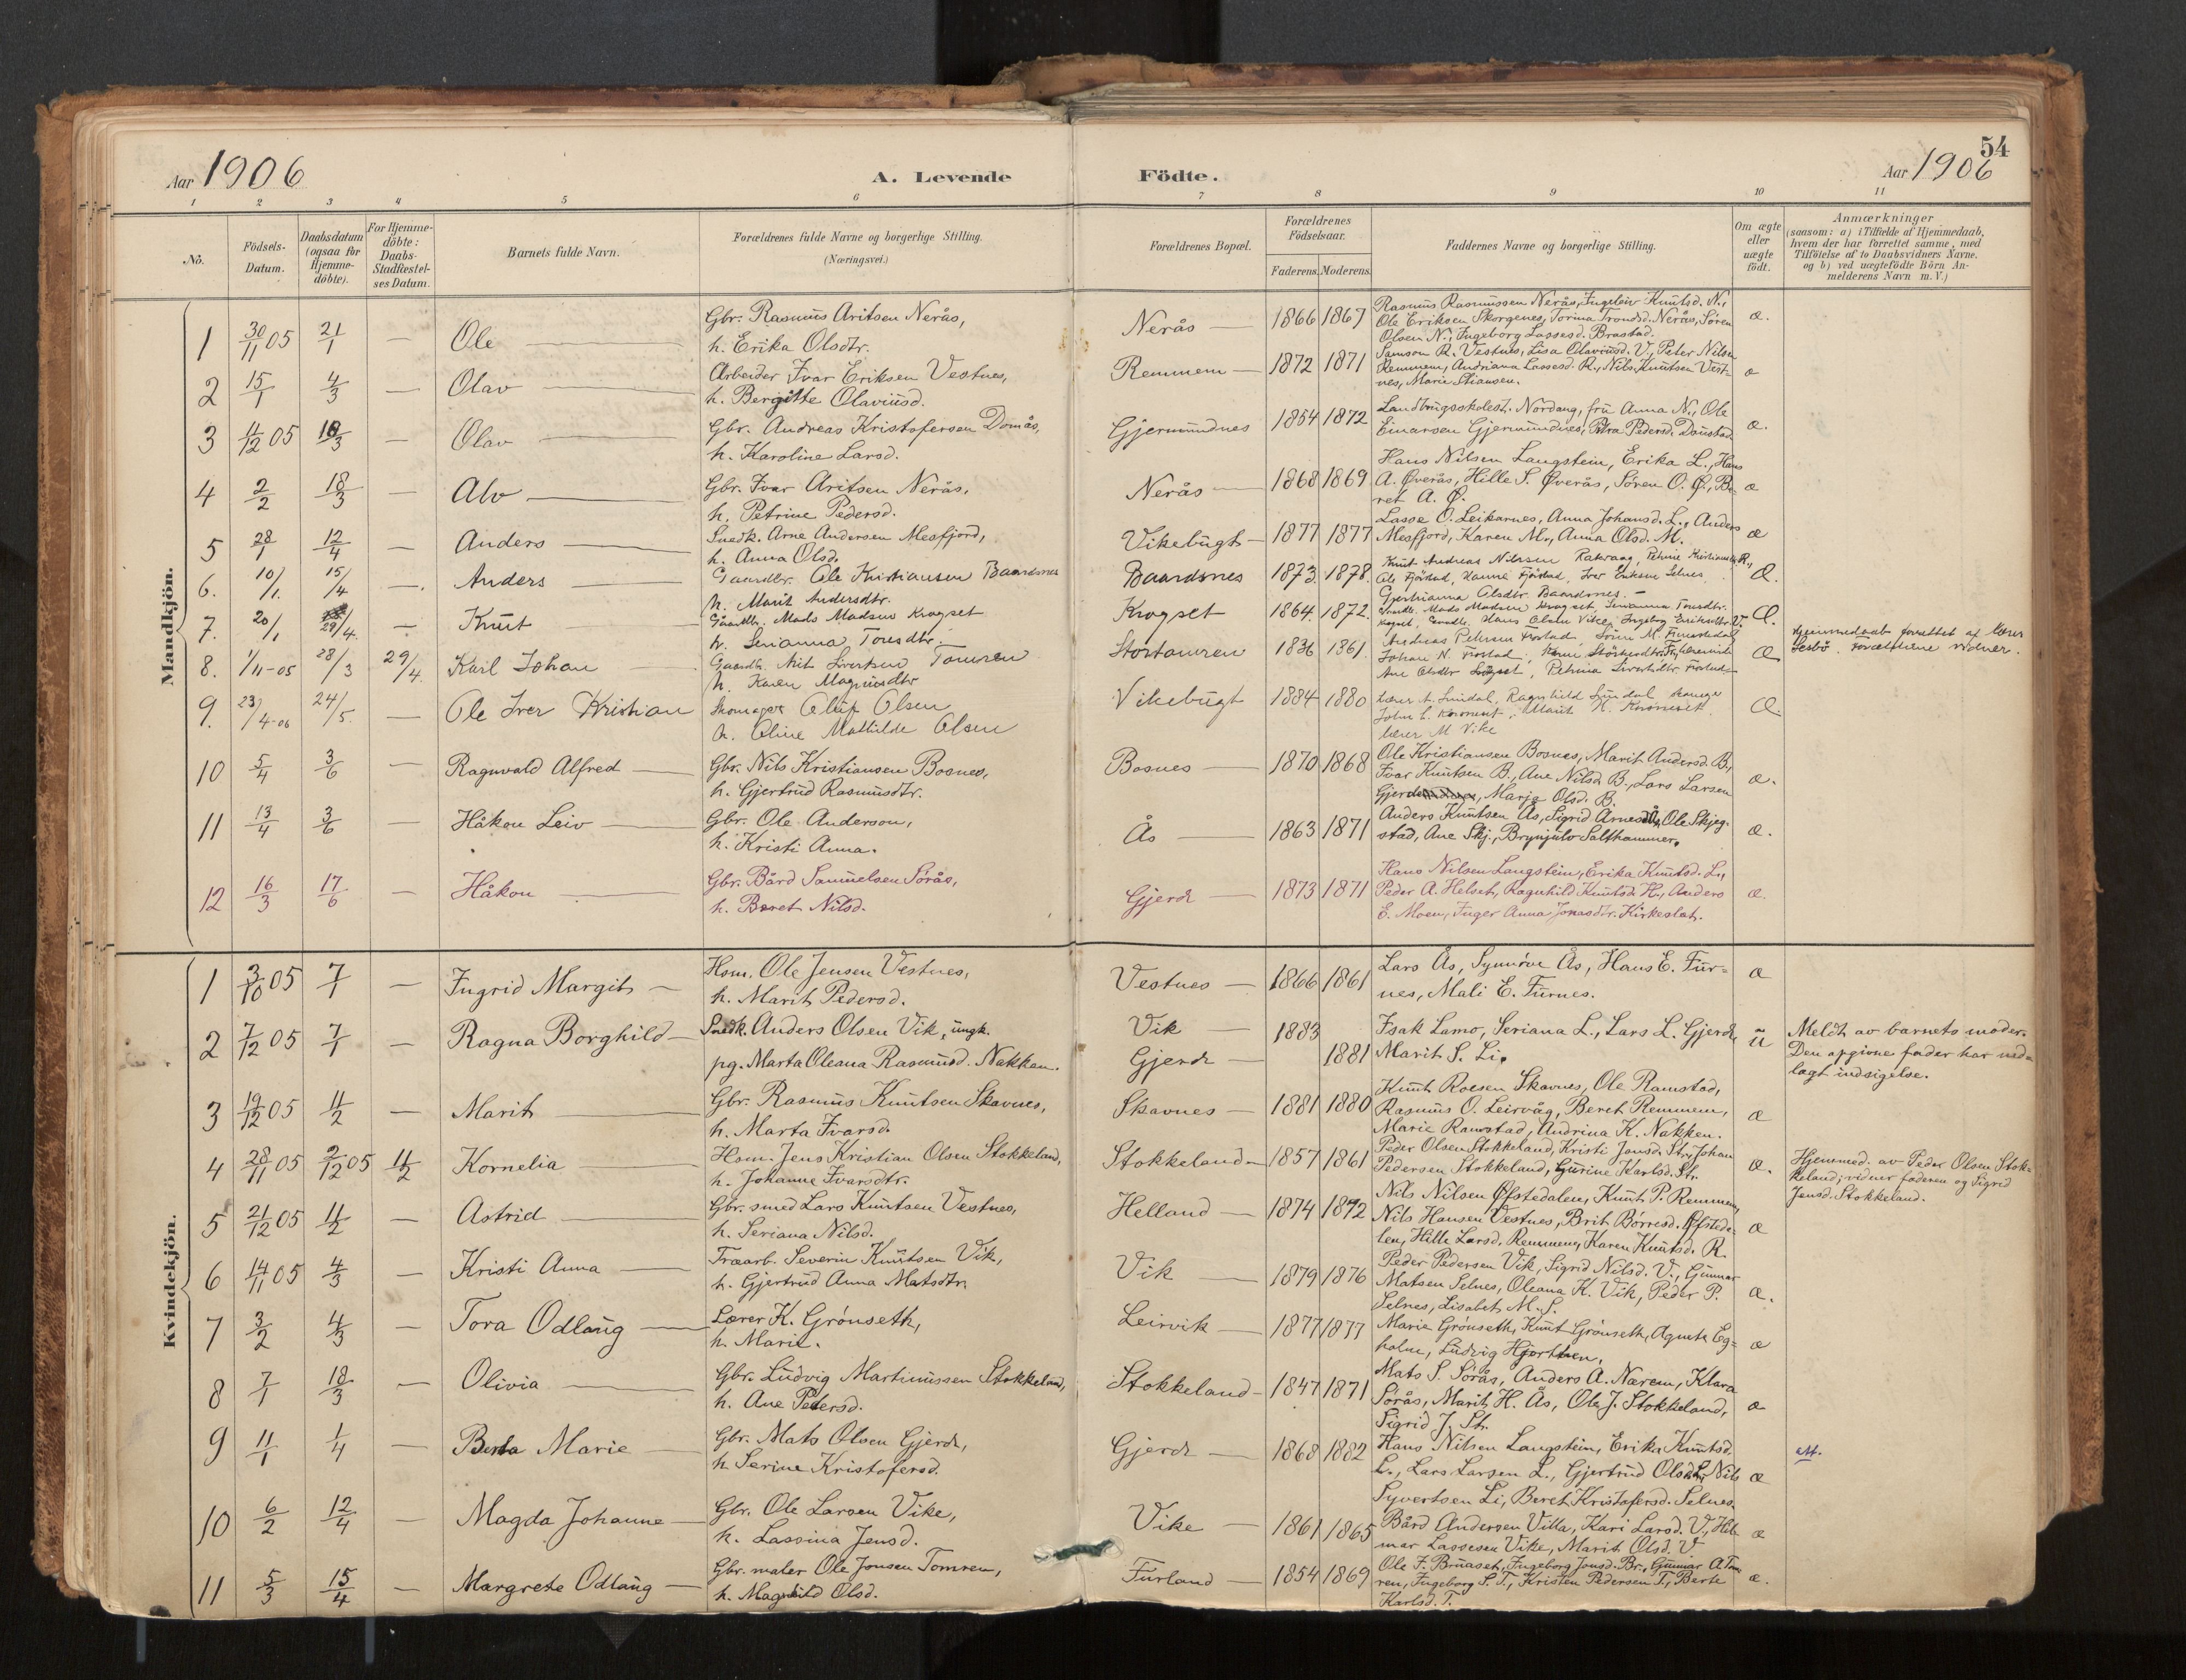 54
Aar 1906
A. Levende
Födte.
Aar 1906
1 2 3 4 5 6 7 8 9 10 11
No.
Födsels-
Datum.
Daabsdatum
(ogsaa for
Hjemme-
döbte).
For Hjemme-
döbte:
Daabs-
Stadfæstel-
ses Datum.
Barnets fulde Navn.
Forældrenes fulde Navne og borgerlige Stilling.
(Næringsvei.)
Forældrenes Bopæl.
Forældrenes
Födselsaar.
Faderens. Moderens.
Faddernes Navne og borgerlige Stilling.
Om ægte
eller
uægte
födt.
Anmærkninger
(saasom: a) i Tilfælde af Hjemmedaab,
hvem der har forrettet samme, med
Tilföielse af to Daabsvidners Navne.
og b) ved uægtefödte Börn An-
melderens Navn m. V.)
Mandkjön.
1 30/11 05 21/1 — Ole
Gbr. Rasmus Aritsen Nerås,
h. Erika Olsdtr.
Nerås — 1866 1867
Rasmus Rasmussen Nerås, Ingeleiv Knutsd. N.,
Ole Eriksen Skorgenes, Torina Trondsd. Nerås, Søren
Olsen N., Ingeborg Lassesd. Brastad.
æ.
2 15/1 4/3 — Olav
Arbeider Ivar Eriksen Vestnes,
h. Bergitte Olaviusd.
Remmem — 1872 1871
Samson R. Vestnes, Lisa Olaviusd. V., Peter Nilsen
Remmem, Andriana Lassesd. R., Nils Knutsen Vest-
nes, Marie Stiansen.
æ
3 11/12 05 18/3 — Olav
Gbr. Andreas Kristofersen Domås,
h. Karoline Larsd.
Gjermundnes 1854 1872
Landbrugsskolest. Nordang, fru Anna N., Ole
Einarsen Gjermundnes, Petra Pedersd. Daustad
æ.
4 2/2 18/3 — Alv
Gbr. Ivar Aritsen Nerås,
h. Petrine Pedersd.
Nerås — 1868 1869
Hans Nilsen Langstein, Erika L., Hans
A. Øverås, Hille S. Øverås, Søren O. Ø., Be-
ret A. Ø.
æ
5 28/1 12/4 — Anders
Snedk. Arne Andersen Mesfjord,
h. Anna Olsd.
Vikebugt — 1877 1877
Lasse O. Leikarnes, Anna Johansd. L., Anders
Mesfjord, Karen M., Anna Olsd. M.
æ
6. 10/1. 15/4 — Anders
Gaardbr. Ole Kristiansen Baardsnes
h. Marit Andersdtr.
Baardsnes 1873. 1878.
Knut Andreas Nilssen Rakvaag, Petrine Kristiansdtr. R.,
Ole Fjørstad, Hanna Fjørstad, Iver Eriksen Selnes
Gjertrianna Olsdtr. Baardsnes. —
Æ.
7. 20/1 29/4. — Knut
Gaardbr. Mads Madsen Krogset
h. Serianna Tonesdtr.
Krogset 1864. 1872.
Gaardb. Mads Madsen Krogset, Serianna Tonesdtr.
Krogset, Gaardb. Hans Olsen Vike, Ingeborg Eriksdtr. V.
Æ.
8. 1/11-05 28/3 29/4. Karl Johan
Gaardb. Nils Sivertsen Tomren
h. Karen Magnusdtr
Stortomren 1836 1861.
Æ
Hjemmedaab forrettet af Lærer
Lesbø. Forældrene vidner.
9. 23/4-06 24/5. — Ole Iver Kristian
Skomager Oluf Olsen
h. Oline Mathilde Olsen
Vikebugt 1884 1880
Lærer A. Sindal, Ragnhild Sindal
Lærer M Vike
Æ.
10 5/4 3/6 — Ragnvald Alfred
Gbr. Nils Kristiansen Bosnes,
h. Gjertrud Rasmusdtr.
Bosnes — 1870 1868
Ole Kristiansen Bosnes, Marit Andersd. B.,
Ivar Knutsen B., Ane Nilsd. B., Lars Larsen
Gjerde, Marje Olsd. B.
æ.
11 13/4 3/6 — Håkon Leiv
Gbr. Ole Anderson,
h. Kristi Anna.
Ås — 1863 1871
Anders Knutsen Ås, Sigrid Arnesd. Ås, Ole Skjeg-
stad, Ane Skj., Brynjulv Salthammer.
æ.
12 16/3 17/6 — Håkon
Gbr. Bård Samuelsen Sørås,
h. Beret Nilsd.
Gjerde — 1873 1871
Hans Nilsen Langstein, Erika Knutsd. L.,
Peder A. Helset, Ragnhild Knutsd. H., Anders
E. Moen, Inger Anna Jonasdtr. Kirkeslet.
æ.
Kvindekjön.
1 3/10 05 7/1 — Ingrid Margit —
Hsm. Ole Jensen Vestnes,
h. Marit Pedersd.
Vestnes — 1866 1861
Lars Ås, Synnøve Ås, Hans E. Fur-
nes, Mali E. Furnes.
æ
2 7/12 05 7/1 — Ragna Borghild —
Snedk. Anders Olsen Vik, ungk.
pg. Marta Oleana Rasmusd. Nakken.
Vik — 1883
Gjerde — 1881
Isak Lamo, Seriana L., Lars L. Gjerde,
Marit S. Li.
u
Meldt av barnets moder.
Den opgivne fader har ned-
lagt indsigelse.
3 19/12 05 11/2 — Marit
Gbr. Rasmus Knutsen Skavnes,
h. Marta Ivarsd.
Skavnes — 1881 1880
Knut Roesen Skavnes, Ole Ramstad,
Rasmus O. Leirvåg, Beret Remmem,
Marie Ramstad, Andrina K. Nakken.
æ
4 28/11 05 2/12 05 11/2 Kornelia
Hsm. Jens Kristian Olsen Stokkeland,
h. Johanne Ivarsdtr.
Stokkeland — 1857 1861
Peder Olsen Stokkeland, Kristi Jonsd. St., Johan
Pedersen Stokkeland, Gurine Karlsd. St.
æ.
Hjemmed. av Peder Olsen Stok-
keland; vidner faderen og Sigrid
Jensd. Stokkeland.
5 21/12 05 11/2 — Astrid
Gbr. smed Lars Knutsen Vestnes,
h. Seriana Nilsd.
Helland — 1874 1872
Nils Nilsen Øfstedalen, Knut P. Remmem,
Nils Hansen Vestnes, Brit Børresd. Øfsteda-
len, Hille Larsd. Remmem, Karen Knutsd. R.
æ
6 14/11 05 4/3 — Kristi Anna
Træarb. Severin Knutsen Vik,
h. Gjertrud Anna Matsdtr.
Vik — 1879 1876
Peder Pedersen Vik, Sigrid Nilsd. V., Gunnar
Matsen Selnes, Oleana K. Vik, Peder P.
Selnes, Lisabet M. S.
æ.
7 3/2 4/3 — Tora Odlaug
Lærer K. Grønseth,
h. Marie.
Leirvik — 1877 1877
Marie Grønseth, Knut Grønseth, Agnete Eg-
holm, Ludvig Hjorthen.
æ
8 7/1 18/3 — Olivia
Gbr. Ludvig Martinussen Stokkeland,
h. Ane Petersd.
Stokkeland — 1847 1871
Mats S. Sørås, Anders A. Nærem, Klara
Sørås, Marit H. Ås, Ole J. Stokkeland,
Sigrid J. St.
æ
9 11/1 1/4 — Berta Marie
Gbr. Mats Olsen Gjerde,
h Serine Kristofersd.
Gjerde — 1868 1882
Hans Nilsen Langstein, Erika Knutsd.
L., Lars Larsen L., Gjertrud Olsd. L., Nils
Syvertsen Li, Beret Kristofersd. Selnes.
æ
att.
10 6/2 12/4 — Magda Johanne —
Gbr. Ole Larsen Vike,
h. Lassina Jensd.
Vike — 1861 1865
Bård Andersen Villa, Kari Larsd. V., Hil-
mar Lassesen Vike, Marit Olsd. V
æ
11 5/3 15/4 — Margrete Odlaug —
Gbr. maler Ole Jonsen Tomrem,
h. Magnhild Olsd.
Furland — 1854 1869
Ole F. Bruaset, Ingeborg Jonsd. Br., Gunnar A Tom-
ren, Ingeborg S. T., Kristen Pedersen T., Berte
Karlsd. T.
æ.